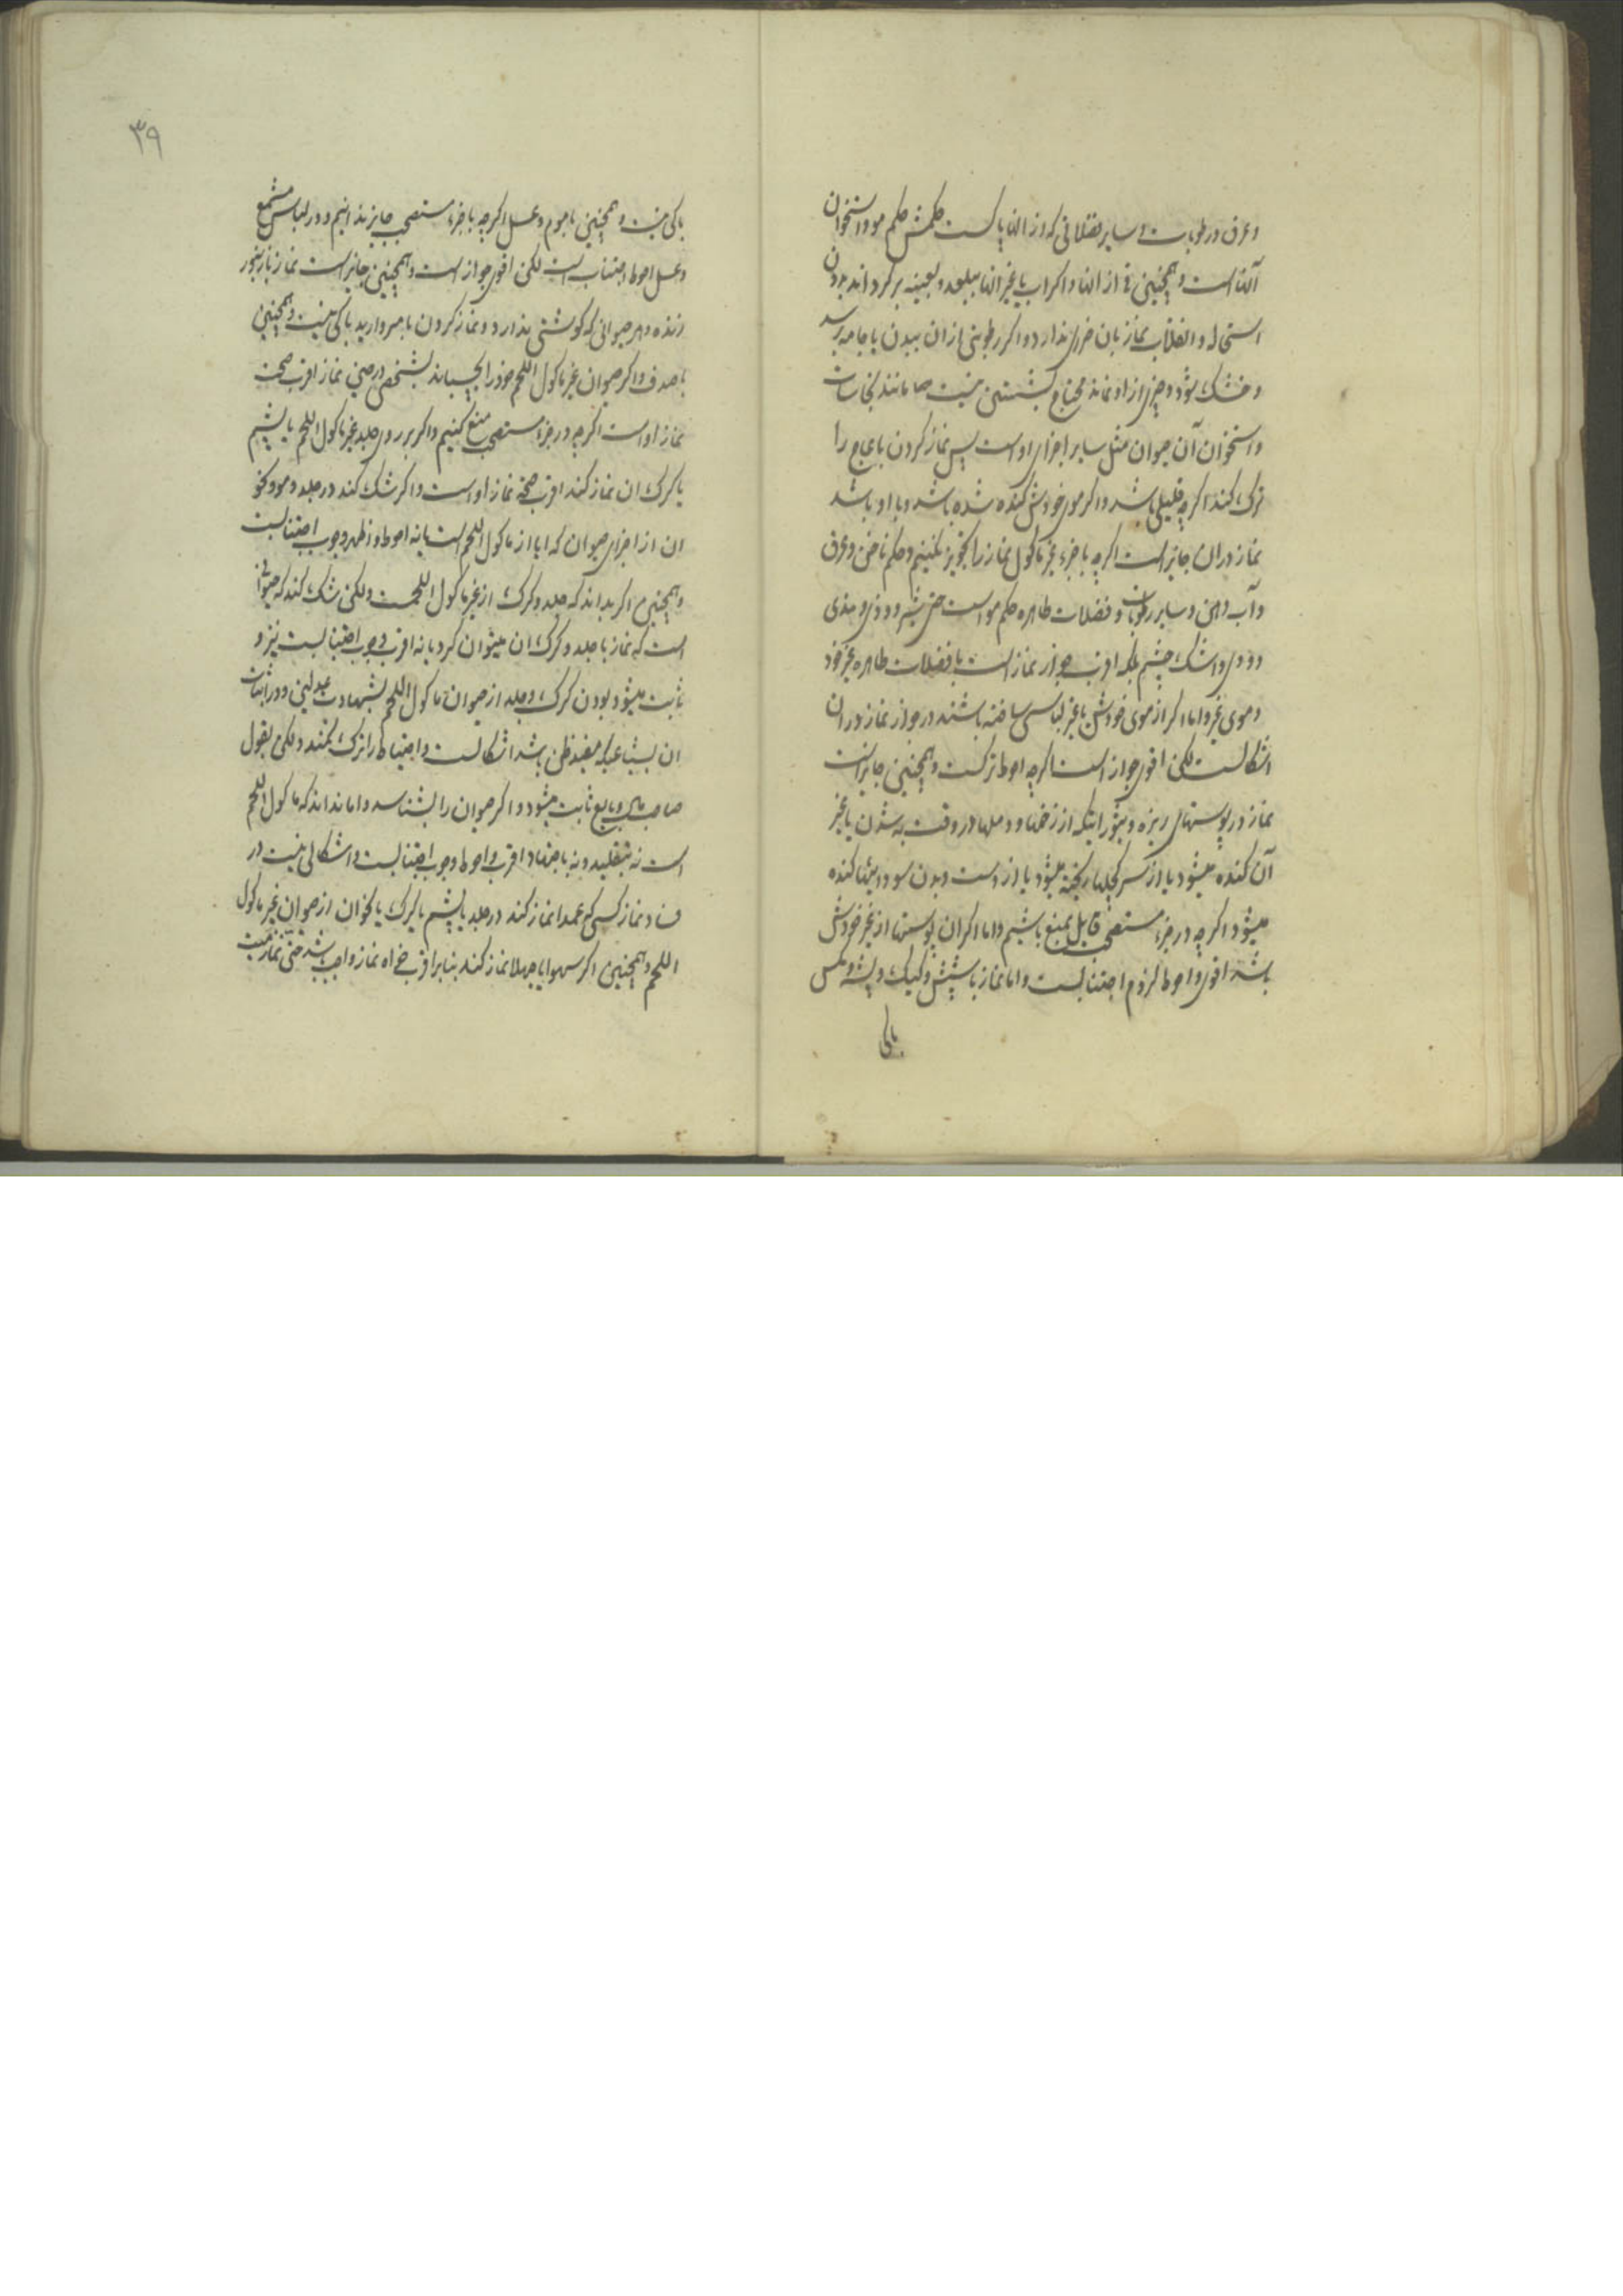 وعرق ورطوبات وساير فضلاتی که از آنها پاکست حکمش حکم مو واستخوان
آنهااست وهمچنین قی از آنها واکر اب یا غیر آنها ببلعد وبعینه برکرداند بدون
استحاله وانقلاب نماز بان ضرری ندارد واکر رطوبتی از ان ببدن یا جامه برسد
وخشک شود وچیزی از او نماند محتاج بشستن نیست مانند نجاسات
واستخوان آن حیوان مثل سایر اجزای اوست پس نماز کردن با عاج را
ترک کند اکرچه قلیلی باشد واکر موی خودش کنده شده باشد وبا او باشد
نماز دران جایز است اکرچه با جزء غیر ماکول نماز را تجویز نکنیم وحکم ناخن وعرق
وآب دهن وسایر رطوبات وفضلات طاهره حکم مو است حتی شیر وودی ومذی
وودی واشک چشم بلکه اقرب جواز نماز است با فضلات طاهره غیر خود
وموی غیر واما اکر از موی خودش یا غیر لباسی ساخته باشند در جواز نماز دران
اشکالست لکن اقوی جواز است اکرچه احوط ترکست وهمچنین جایز است
نماز در پوستهای ریزه وبثور اینکه از زخمها ودملها در وقت به شدن یا غیر
آن کنده میشود یا از سر کچلها ریخته میشود یا از دست وبدن سوداییها کنده
میشود اکرچه در جزء مستصحب قایل بمنع باشیم واما اکر ان پوستها از غیر خودش
باشد اقوی واحوط لزوم اجتنابست واما نماز با شپش وکیک وپشه ومکس
باکی
۳۹
باکی نیست وهمچنین با موم وعسل اکرچه با جزء مستصحب جایز ندانیم ودر لباس مشمع
وعسل احوط اجتناب است لکن اقوی جواز است وهمچنین جایز است نماز با زنبور
زنده وهر حیوانی که کوشتی ندارد ونماز کردن با مروارید باکی نیست وهمچنین
با صدف واکر حیوان غیر ماکول اللحم خود را بچسباند بشخص در حین نماز اقرب صحت
نماز اواست اکرچه در جزء مستصحب منع کنیم واکر بر روی جلد غیر ماکول اللحم یا پشم
یا کرک ان نماز کند اقرب صحة نماز اواست واکر شک کند در جلد ومو ونحو
ان از اجزای حیوان که ایا از ماکول اللحم است یا نه احوط واظهر وجوب اجتنابست
وهمچنین اکر بداند که جلد وکرک از غیر ماکول اللحمست ولکن شک کند که حیوانی
است که نماز با جلد وکرک ان میتوان کرد یا نه اقرب وجوب اجتنابست نیز و
ثابت میشود بودن کرک وجلد از حیوان ماکول اللحم بشهادت عدلین ودر اثبات
ان بشیاعیکه مفید ظن باشد اشکالست واحتیاط را ترک نکنند ولکن بقول
صاحب ید وبایع ثابت میشود واکر حیوان را بشناسد واما نداند که ماکول اللحم
است نه بتقلید ونه باجتهاد اقرب واحوط وجوب اجتنابست واشکالی نیست در
فساد نماز کسی که عمدا نماز کند در جلد یا پشم یا کرک یا نحو ان از حیوان غیر ماکول
اللحم وهمچنین اکر سهوا یا جهلا نماز کند بنابر اقرب خواه نماز واجب باشد حتی نماز میت